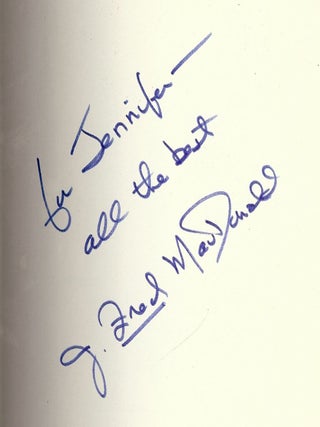 for Jennifer—
all the best
J. Fred MacDonald